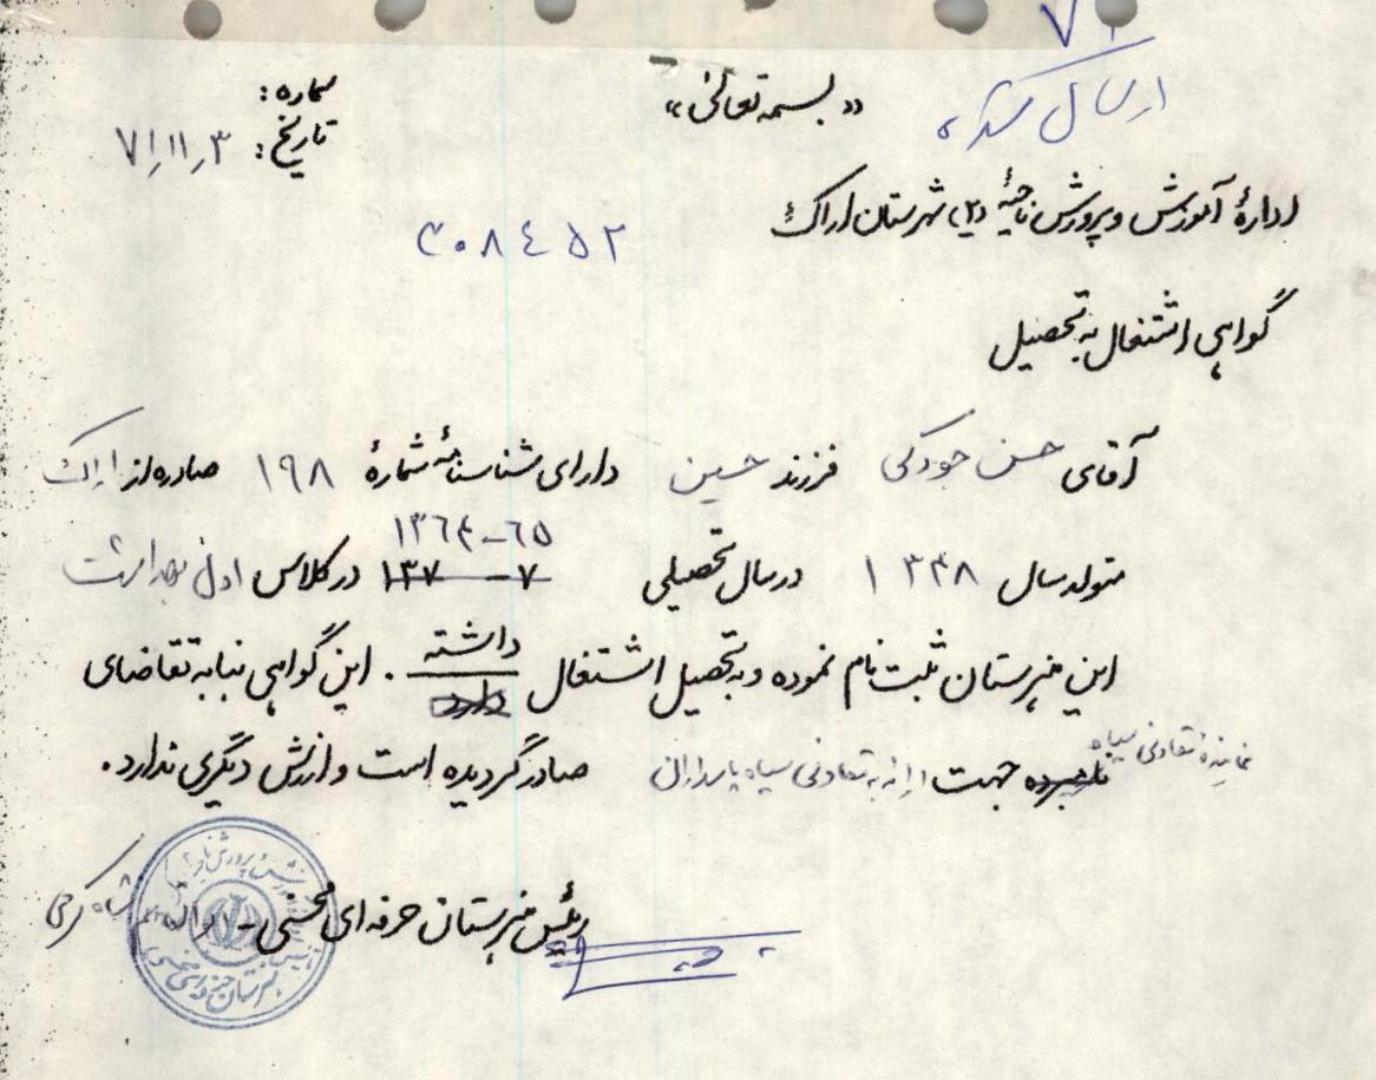 ۷۱
ارسال شد
«بسمه تعالی»
شماره:
تاریخ: ۷۱/۱۱/۳
ادارهٔ آموزش و پرورش ناحیهٔ (۲) شهرستان اراک
۳۰۸۴۵۲
گواهی اشتغال به تحصیل
آقای حسن جودکی فرزند حسین دارای شناسنامهٔ شمارهٔ ۱۹۸ صادره از اراک
۱۳۶۴-۶۵
متولد سال ۱۳۴۸ در سال تحصیلی ۷-۱۳۷ در کلاس اول بهداشت
این هنرستان ثبت نام نموده و به تحصیل اشتغال داشته دارد. این گواهی بنا به تقاضای
نماینده تعاونی سپاه نامبرده جهت ارائه به تعاونی سپاه پاسداران صادر گردیده است و ارزش دیگری ندارد.
رئیس هنرستان حرفه‌ای محسنی - شاه کرمی